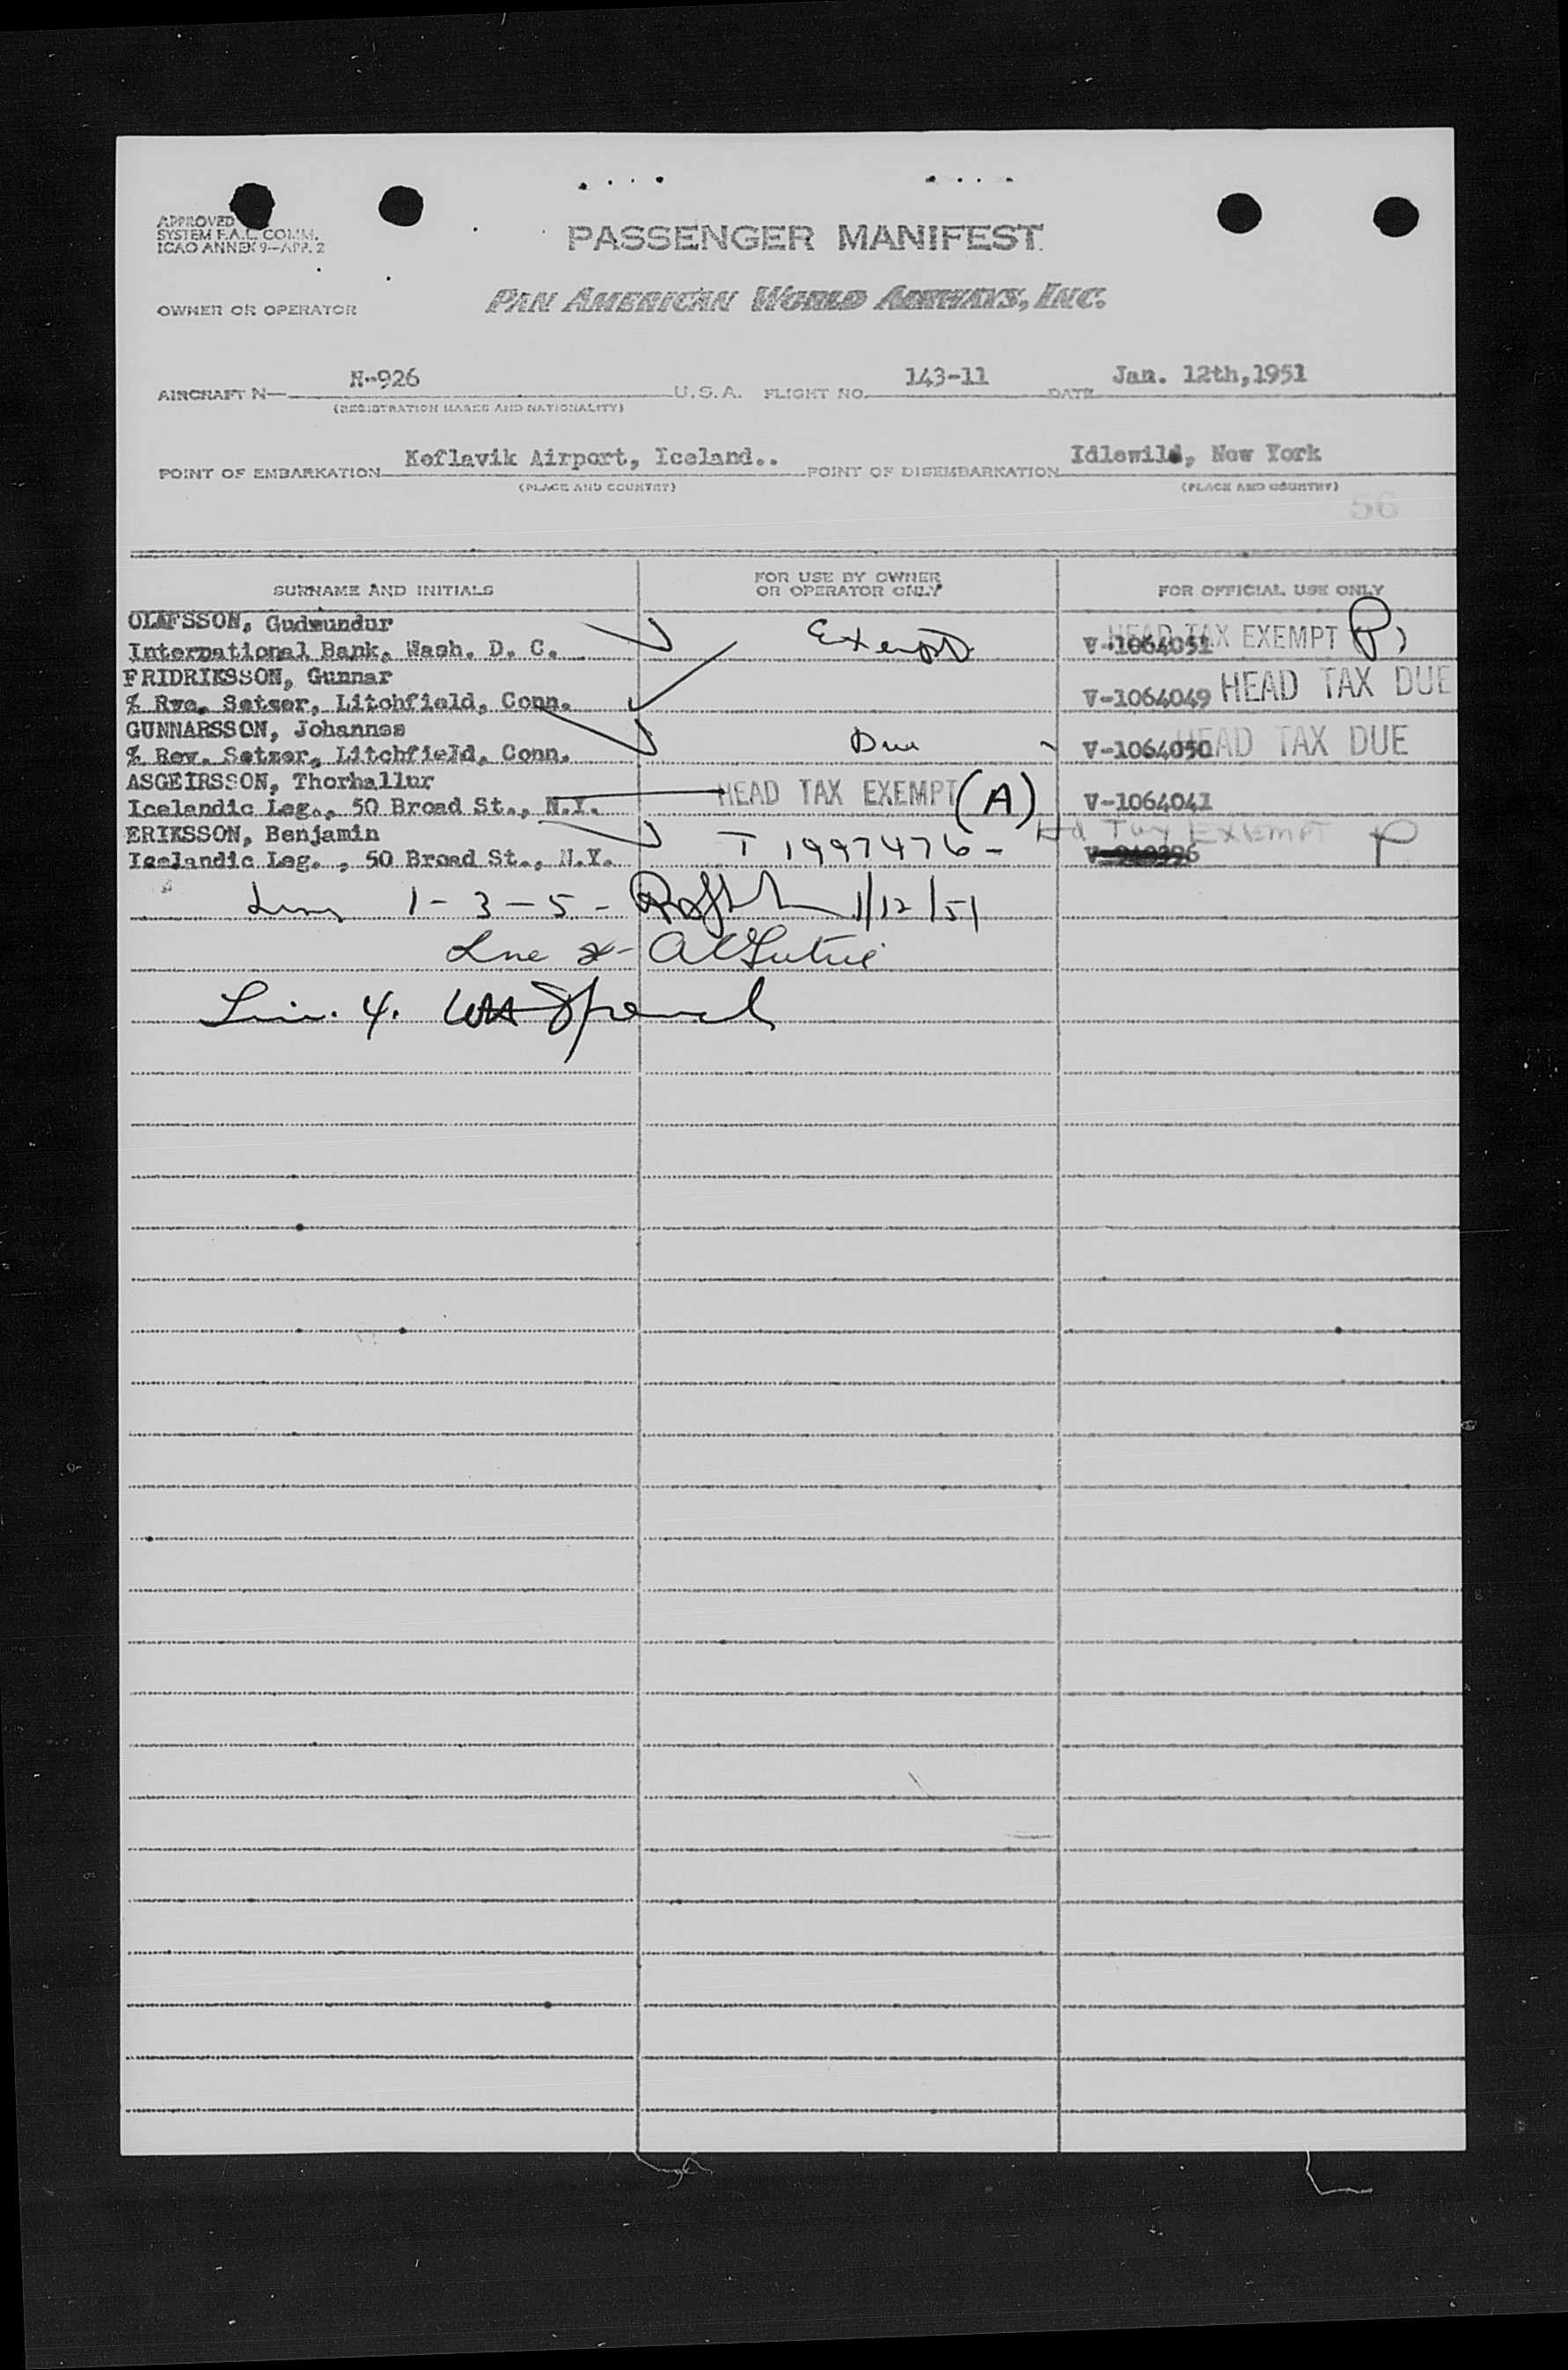 APPROVED
SYSTEM F.A.L. COMM.
ICAO ANNEX 9—APP. 2
PASSENGER MANIFEST
OWNER OR OPERATOR PAN AMERICAN WORLD AIRWAYS, INC.
AIRCRAFT N— N-926 U.S.A. FLIGHT NO. 143-11 DATE Jan. 12th,1951
(REGISTRATION MARKS AND NATIONALITY)
POINT OF EMBARKATION Keflavik Airport, Iceland.. POINT OF DISEMBARKATION Idlewild, New York
(PLACE AND COUNTRY) (PLACE AND COUNTRY)
56
SURNAME AND INITIALS FOR USE BY OWNER OR OPERATOR ONLY FOR OFFICIAL USE ONLY
OLAFSSON, Gudmundur
International Bank, Wash. D. C. Exempt V-1064051 HEAD TAX EXEMPT (P)
FRIDRIKSSON, Gunnar
% Rve. Setzer, Litchfield, Conn. V-1064049 HEAD TAX DUE
GUNNARSSON, Johannes
% Rev. Setzer, Litchfield, Conn. Due V-1064050 HEAD TAX DUE
ASGEIRSSON, Thorhallur
Icelandic Leg., 50 Broad St., N.Y. HEAD TAX EXEMPT (A) V-1064041
ERIKSSON, Benjamin Hd Tax Exempt P
Icelandic Leg. , 50 Broad St., N.Y. T 1997476-
1 - 3 - 5 - 1/12/51
Line 4.